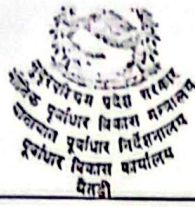 सुदूरपश्चिम प्रदेश सरकार
भौतिक पूर्वाधार विकास मन्त्रालय
यातायात पूर्वाधार निर्देशनालय
पूर्वाधार विकास कार्यालय
बैतडी